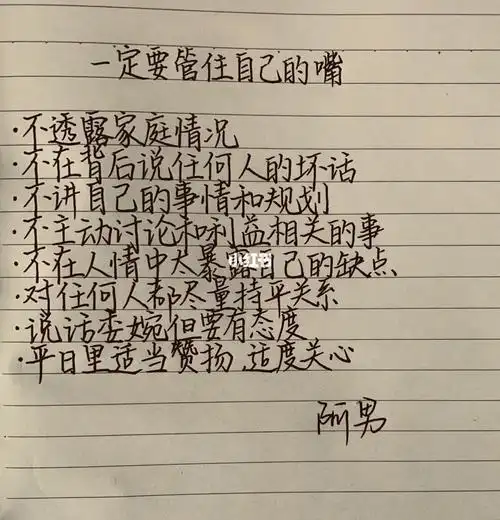 一定要管住自己的嘴
·不透露家庭情况
·不在背后说任何人的坏话
·不讲自己的事情和规划
·不主动讨论和利益相关的事
·不在人情中太暴露自己的缺点
·对任何人都尽量持平关系
·说话委婉但要有态度
·平日里适当赞扬,适度关心
阿男
小红书